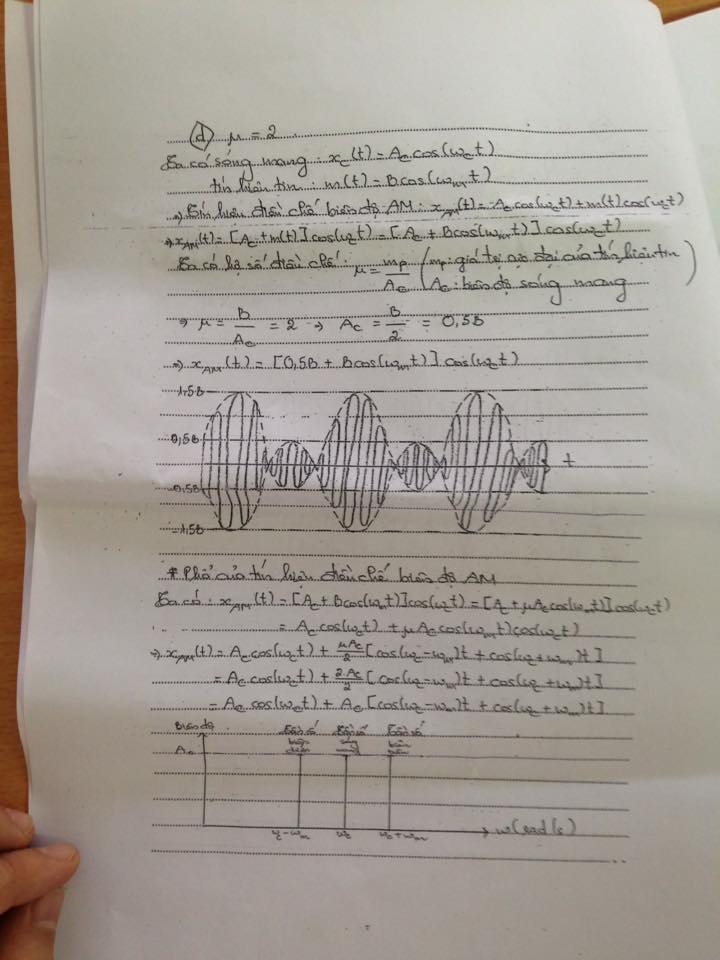 (d) μ = 2
Ta có sóng mang : x_c(t) = A_c cos(ω_c t)
tín hiệu tin : m(t) = B cos(ω_m t)
⇒ Tín hiệu điều chế biên độ AM : x_AM(t) = A_c cos(ω_c t) + m(t) cos(ω_c t)
⇒ x_AM(t) = [A_c + m(t)] cos(ω_c t) = [A_c + B cos(ω_m t)] cos(ω_c t)
Ta có hệ số điều chế : μ = m_p / A_c (m_p : giá trị cực đại của tín hiệu tin
A_c : biên độ sóng mang)
⇒ μ = B / A_c = 2 ⇒ A_c = B / 2 = 0,5B
⇒ x_AM(t) = [0,5B + B cos(ω_m t)] cos(ω_c t)
1,5B
0,5B
t
-0,5B
-1,5B
* Phổ của tín hiệu điều chế biên độ AM
Ta có : x_AM(t) = [A_c + B cos(ω_m t)] cos(ω_c t) = [A_c + μA_c cos(ω_m t)] cos(ω_c t)
= A_c cos(ω_c t) + μA_c cos(ω_m t) cos(ω_c t)
⇒ x_AM(t) = A_c cos(ω_c t) + μA_c / 2 [cos(ω_c - ω_m)t + cos(ω_c + ω_m)t]
= A_c cos(ω_c t) + 2A_c / 2 [cos(ω_c - ω_m)t + cos(ω_c + ω_m)t]
= A_c cos(ω_c t) + A_c [cos(ω_c - ω_m)t + cos(ω_c + ω_m)t]
Biên độ Tần số Tần số Tần số
A_c biên sóng biên
mang
ω_c - ω_m ω_c ω_c + ω_m ω(rad/s)